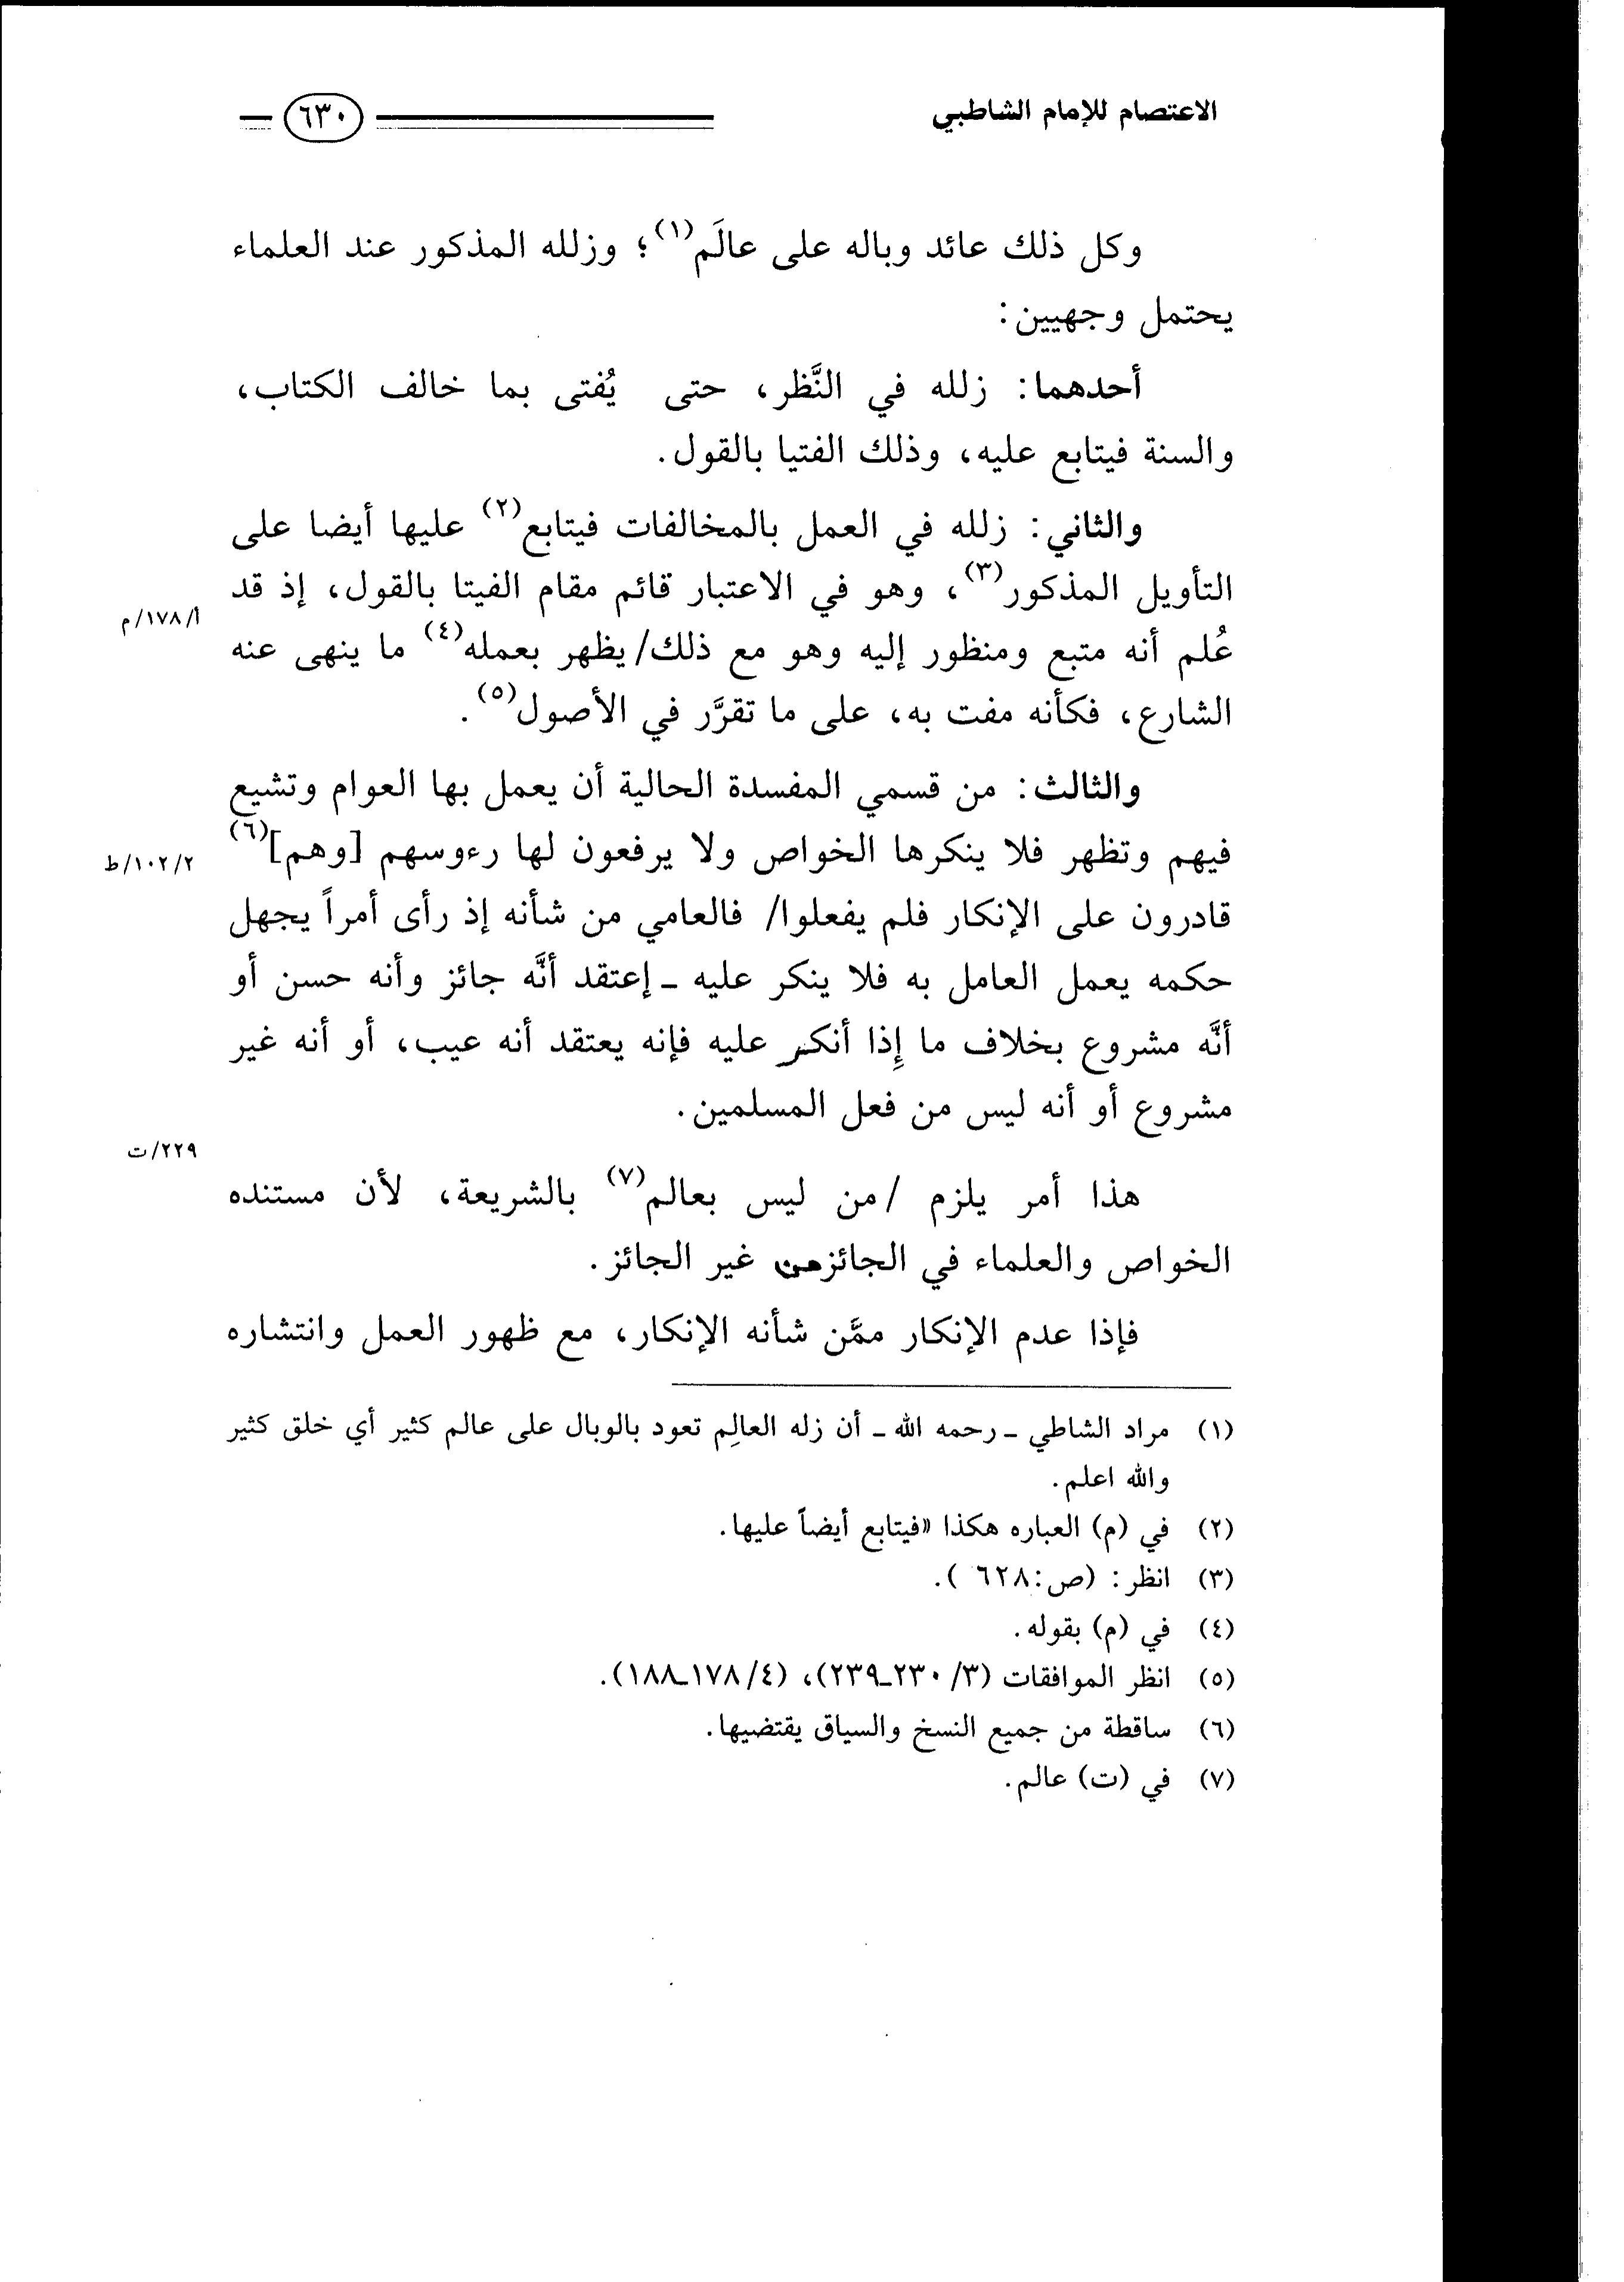 الاعتصام للإمام الشاطبي
٦٣٠
وكل ذلك عائد وباله على عالَم(١)؛ وزلله المذكور عند العلماء
يحتمل وجهيين:
أحدهما: زلله في النَّظر، حتى يُفتى بما خالف الكتاب،
والسنة فيتابع عليه، وذلك الفتيا بالقول.
والثاني: زلله في العمل بالمخالفات فيتابع(٢) عليها أيضا على
التأويل المذكور(٣)، وهو في الاعتبار قائم مقام الفيتا بالقول، إذ قد
أ/١٧٨/م
عُلم أنه متبع ومنظور إليه وهو مع ذلك/يظهر بعمله(٤) ما ينهى عنه
الشارع، فكأنه مفت به، على ما تقرَّر في الأصول(٥).
والثالث: من قسمي المفسدة الحالية أن يعمل بها العوام وتشيع
فيهم وتظهر فلا ينكرها الخواص ولا يرفعون لها رءوسهم [وهم](٦)
٢/١٠٢/ط
قادرون على الإنكار فلم يفعلوا/ فالعامي من شأنه إذ رأى أمراً يجهل
حكمه يعمل العامل به فلا ينكر عليه ـ إعتقد أنَّه جائز وأنه حسن أو
أنَّه مشروع بخلاف ما إِذا أنكر عليه فإنه يعتقد أنه عيب، أو أنه غير
مشروع أو أنه ليس من فعل المسلمين.
٢٢٩/ت
هذا أمر يلزم /من ليس بعالم(٧) بالشريعة، لأن مستنده
الخواص والعلماء في الجائز من غير الجائز.
فإذا عدم الإنكار ممَّن شأنه الإنكار، مع ظهور العمل وانتشاره
(١) مراد الشاطي ـ رحمه الله ـ أن زله العالِم تعود بالوبال على عالم كثير أي خلق كثير
والله اعلم.
(٢) في (م) العباره هكذا «فيتابع أيضاً عليها.
(٣) انظر: (ص:٦٢٨ ).
(٤) في (م) بقوله.
(٥) انظر الموافقات (٣/ ٢٣٠ـ٢٣٩)، (٤/ ١٧٨ـ١٨٨).
(٦) ساقطة من جميع النسخ والسياق يقتضيها.
(٧) في (ت) عالم.